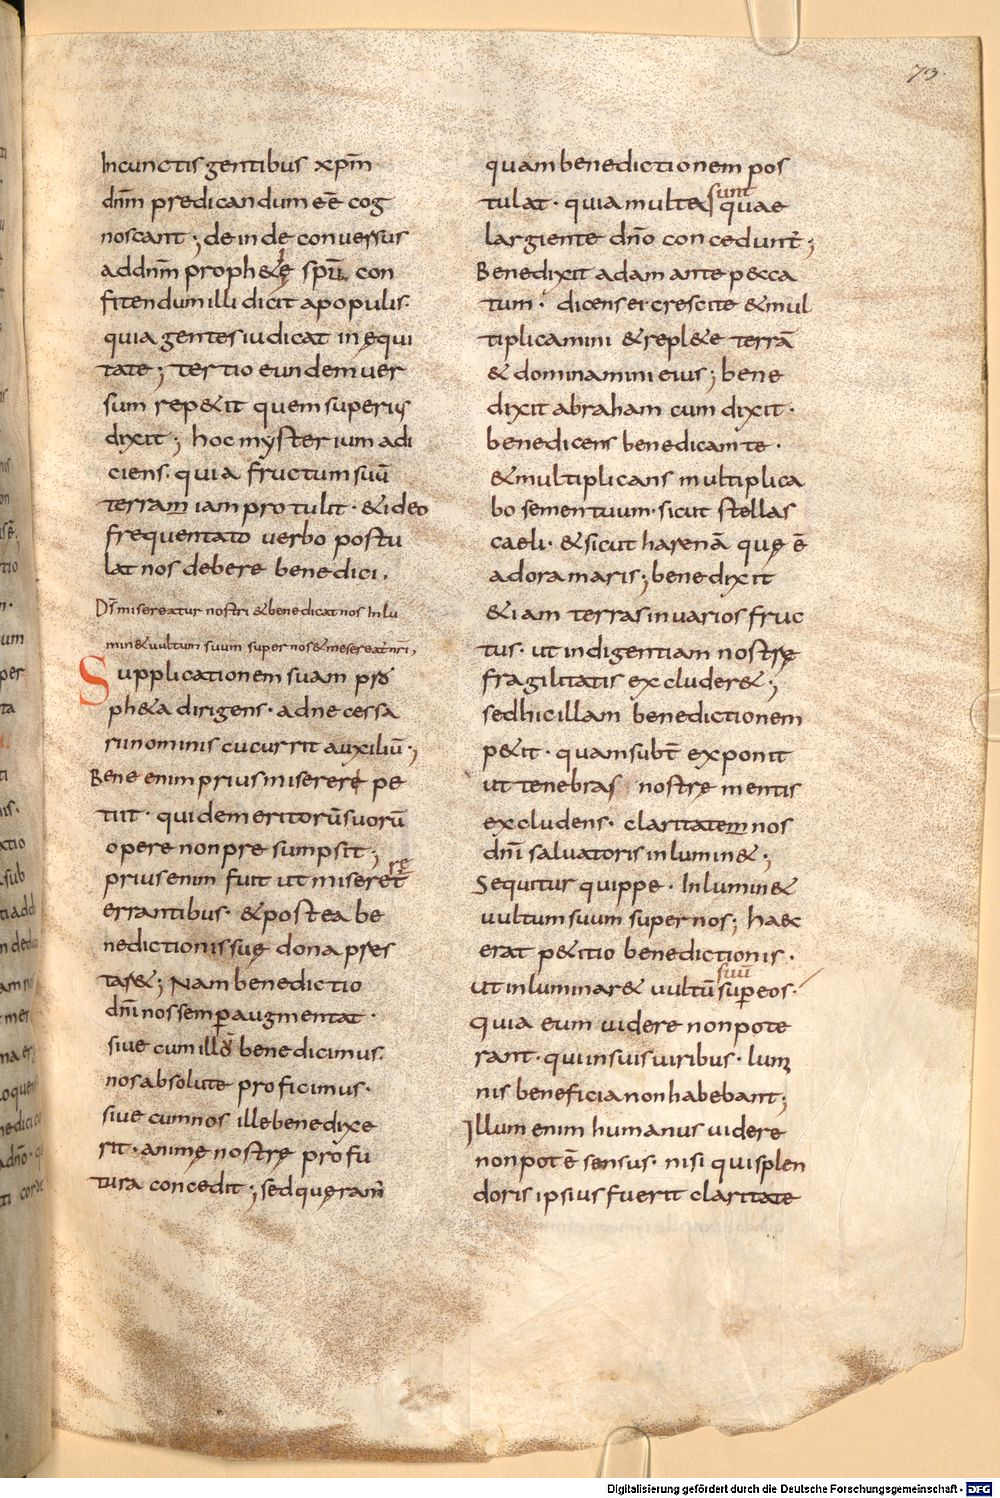 73.
Incunctis gentibus xp̄m
dn̄m predicandum eē cog
noscant; deinde conversus
addn̄m proph&ę spū con
fitendum illi dicit apopulis.
quia gentes iudicat inęqui
tate; tertio eundem uer
sum rep&it quem superius
dixit; hoc mysterium adi
ciens. quia fructum suū
terram iam protulit. &ideo
frequentato verbo postu
lat nos debere benedici.
Ds̄ misereatur nostri &benedicat nos Inlu
min& uultum suum super nos & mesereat̄ nr̄i,
Supplicationem suam pro
ph&a dirigens. adnecessa
rii nominis cucurrit auxiliū;
Bene enim prius miserere pe
tiit. qui demeritorū suorū
opere non presumpsit;
prius enim fuit ut miseret̄
re
errantibus. &postea be
nedictionis suę dona pres
tas&; Nam benedictio
dn̄i nos semp augmentat.
sive cum illo benedicimus.
nos absolute proficimus.
sive cum nos ille benedixe
rit. animę nostrę profu
tura concedit; sed queram̄
quam benedictionem pos
tulat. quia multa quae
sunt
largiente dn̄o conceduntur;
Benedixit adam ante pecca
tum. dicens er crescite &mul
tiplicamini &repl&e terrā
& dominamini eius; bene
dixit abraham cum dixit.
benedicens benedicam te.
&multiplicans multiplica
bo semen tuum. sicut stellas
caeli. &sicut harenā quę ē
ad ora maris; benedixit
&iam terras in varios fruc
tus. ut indigentiam nostrę
fragilitatis excluder&;
sed hic illam benedictionem
p&it. quam subt̄ exponit
ut tenebras nostrę mentis
excludens. claritatem nos
dn̄i salvatoris inlumin&;
Sequitur quippe. Inlumin&
uultum suum super nos; haec
erat p&itio benedictionis.
ut inluminar& uultū sup eos.
suū
quia eum videre non pote
rant. qui in suis viribus. lumi
nis beneficia non habebant;
Illum enim humanus videre
non potē sensus. nisi qui splen
doris ipsius fuerit claritate
Digitalisierung gefördert durch die Deutsche Forschungsgemeinschaft - DFG